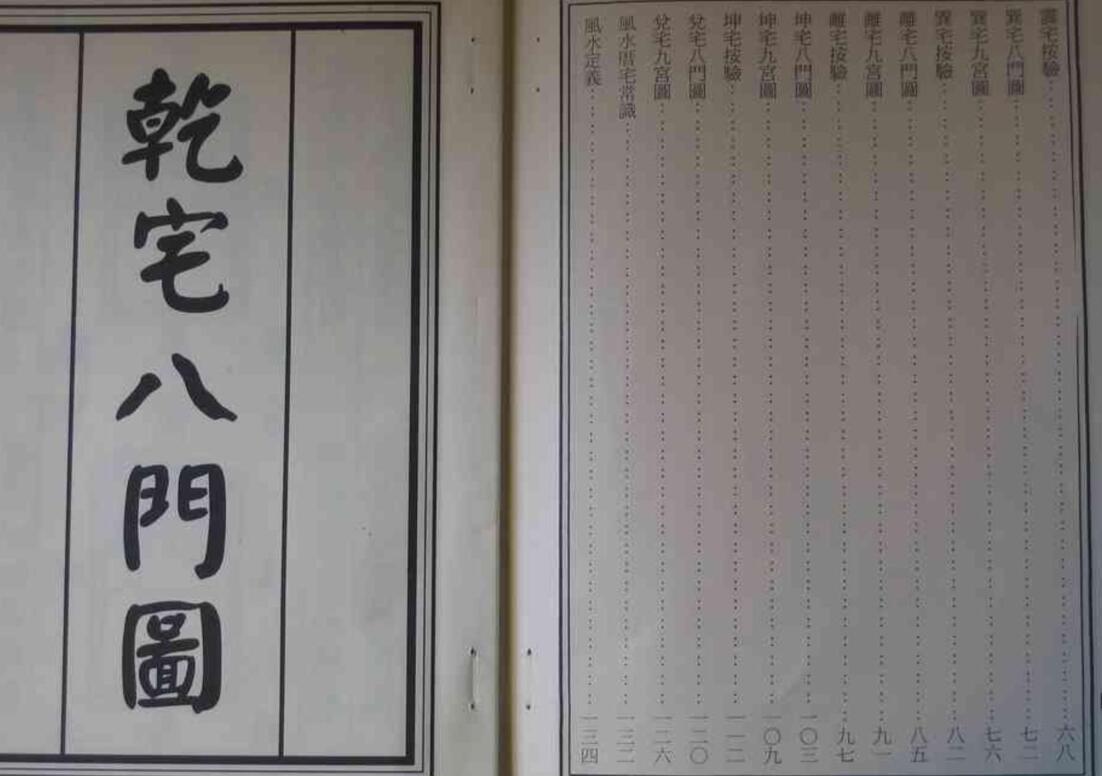 震宅按驗⋯⋯六八
巽宅八門圖⋯⋯七二
巽宅九宮圖⋯⋯七六
巽宅按驗⋯⋯八二
離宅八門圖⋯⋯八五
離宅九宮圖⋯⋯九一
離宅按驗⋯⋯九七
坤宅八門圖⋯⋯一〇三
坤宅九宮圖⋯⋯一〇九
坤宅按驗⋯⋯一一二
兌宅八門圖⋯⋯一二〇
兌宅九宮圖⋯⋯一二六
風水暦宅常識⋯⋯一三二
風水定義⋯⋯一三四
乾宅八門圖